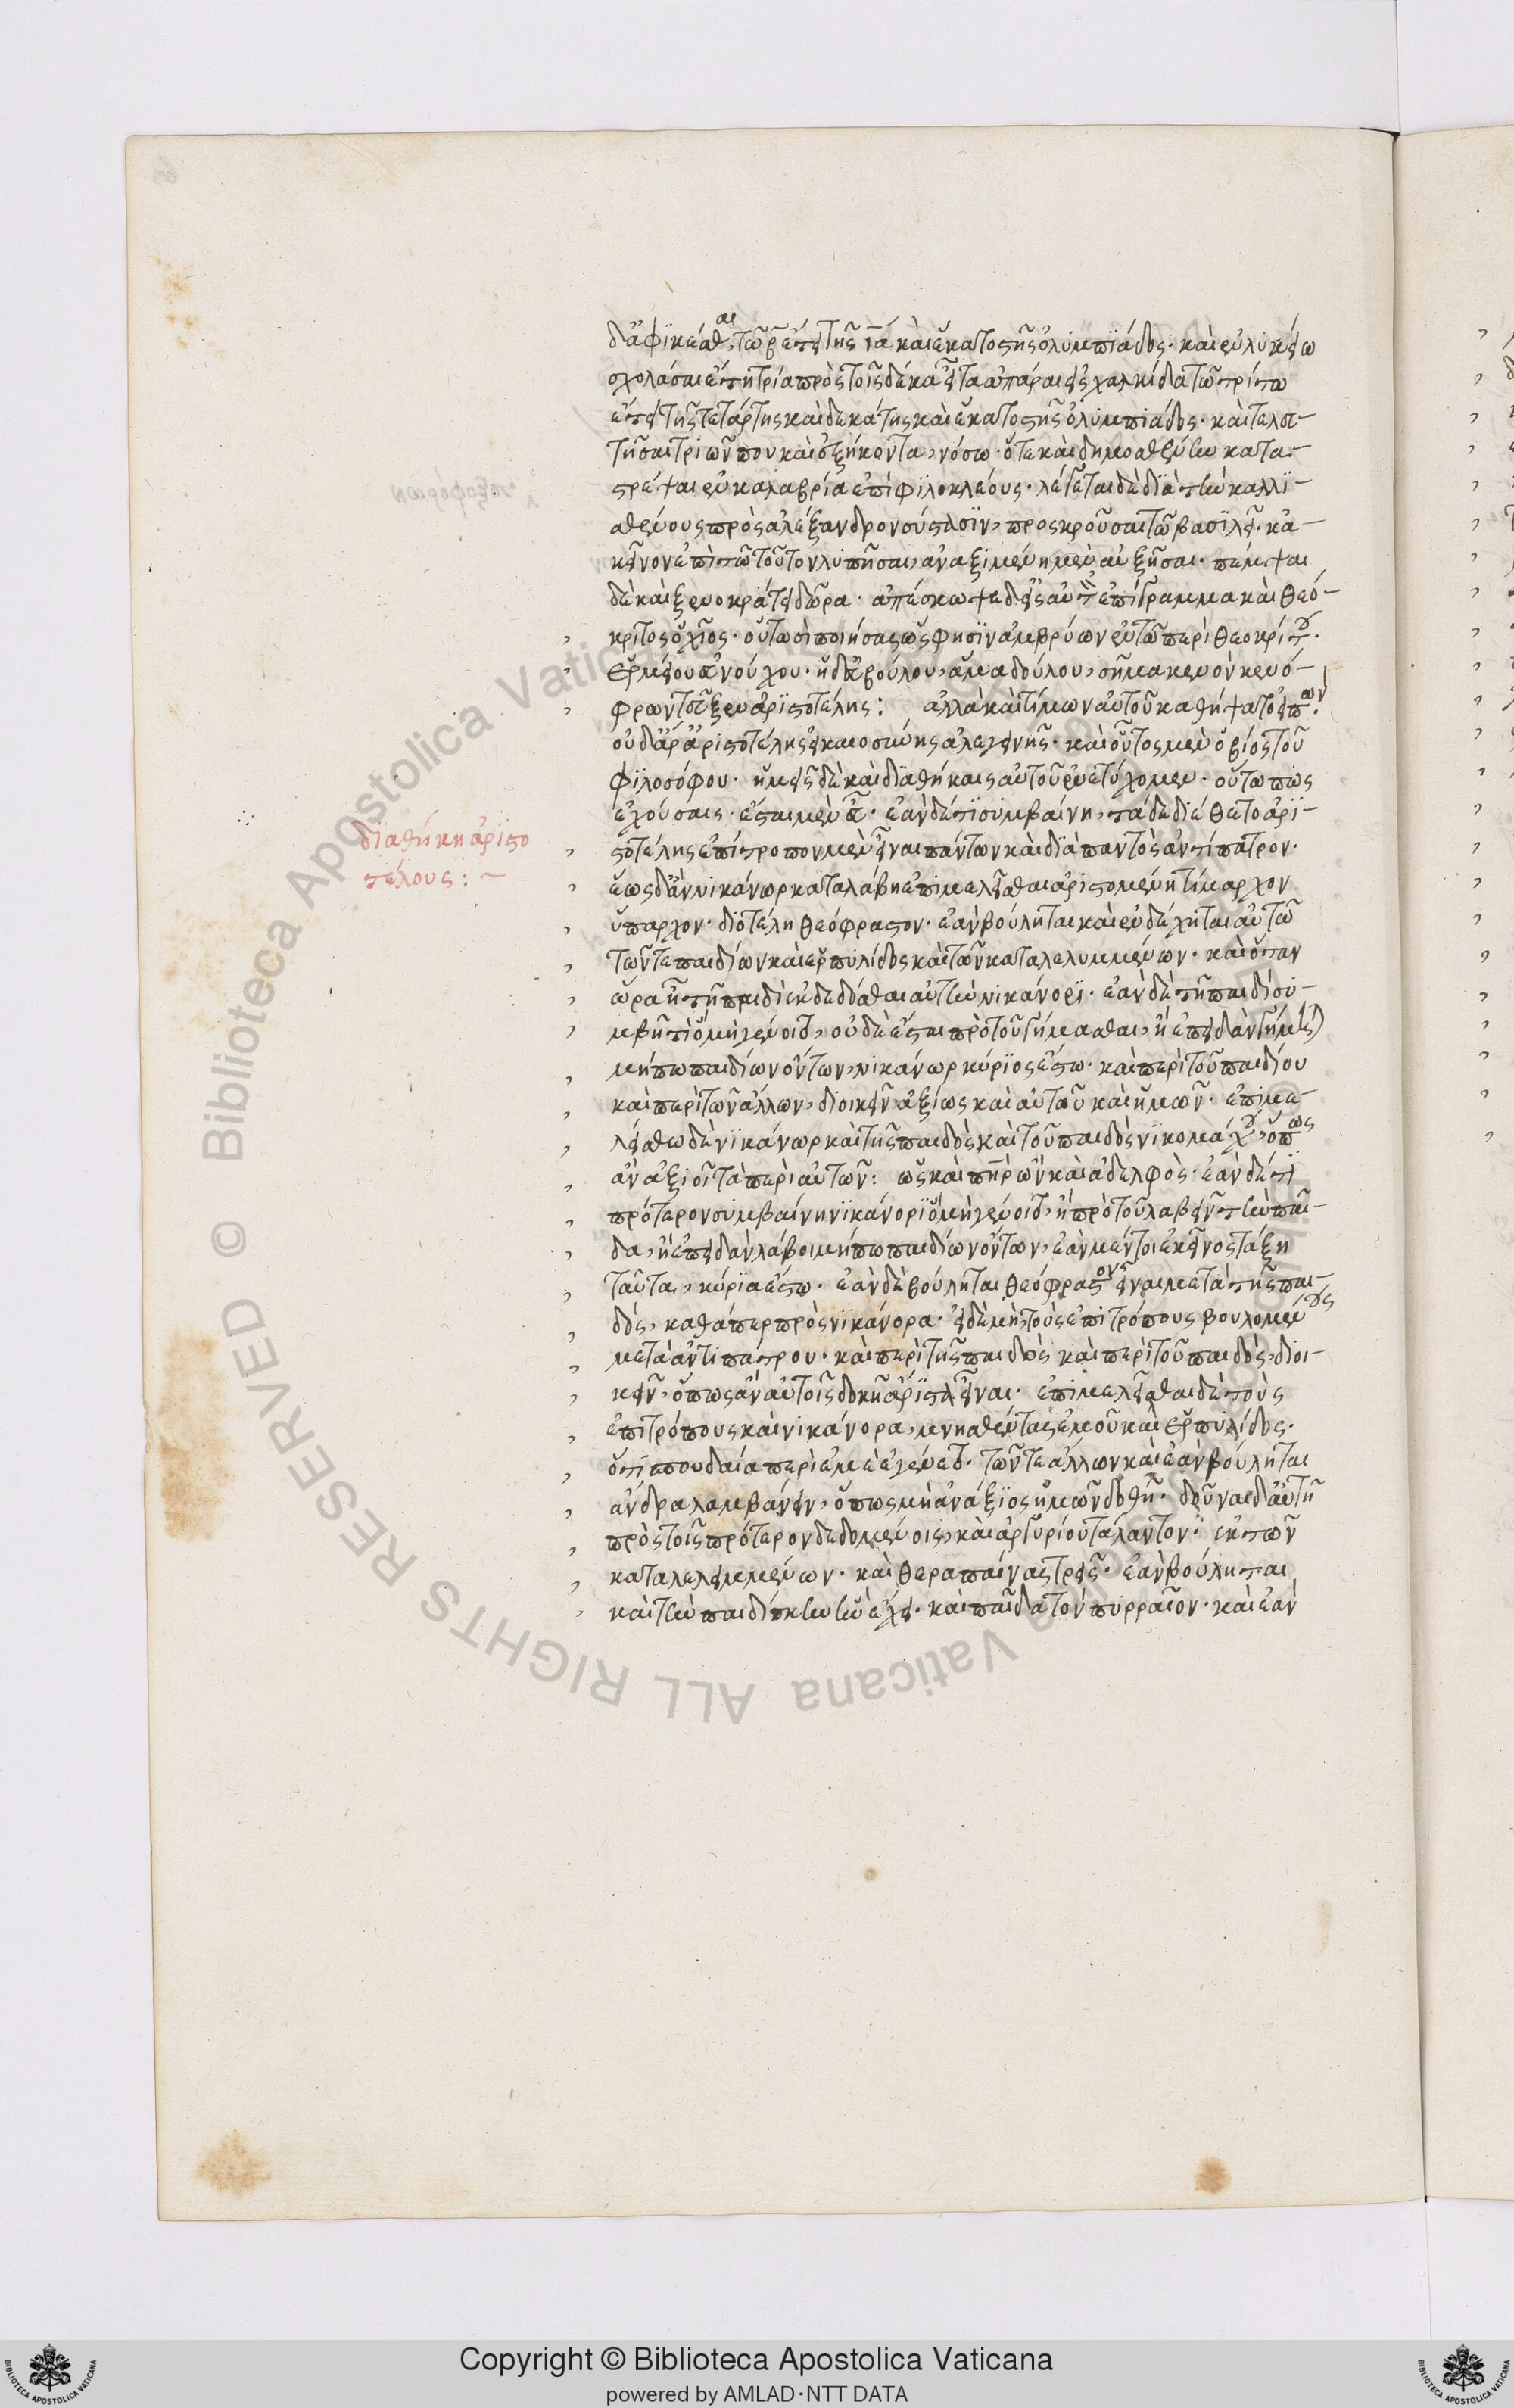 δ' ἀφικέσθαι, τῶ β ἔτει τῆς ια καὶ ἑκατοστῆς ὀλυμπιάδος. καὶ ἐν λυκείω
σχολάσαι ἔτη τρία πρὸς τοῖς δέκα εἶτα ἀπάραι εἰς χαλκίδα τῶ τρίτω
ἔτει τῆς τετάρτης καὶ δεκάτης καὶ ἑκατοστῆς ὀλυμπιάδος. καὶ τελευ-
τῆσαι τριῶν που καὶ ἑξήκοντα, νόσω. ὅτε καὶ δημοσθένην κατα-
στρέψαι ἐν καλαβρία ἐπὶ φιλοκλέους. λέγεται δὲ διὰ τὴν καλλι-
σθένους πρὸς ἀλέξανδρον σύστασιν, προσκροῦσαι τῶ βασιλεῖ. κἀ-
κεῖνον ἐπὶ τῶ τοῦτον λυπῆσαι, ἀναξιμένη μὲν αὐξῆσαι. πέμψαι
δὲ καὶ ξενοκράτει δῶρα. ἀπέσκωψε δ' εἰς αὐτὸν ἐπίγραμμα καὶ θεό-
κριτος ὁ χῖος. οὑτωσὶ ποιήσας ὥς φησιν ἀμβρύων ἐν τῶ περὶ θεοκρίτου.
ἑρμείου εὐνούχου. ἠδ' εὐβούλου, ἅμα δούλου, σῆμα κενὸν κενό-
φρων τεῦξεν ἀριστοτέλης: ἀλλὰ καὶ τίμων αὐτοῦ καθήψατο εἰπών.
οὐδ' ἄρ' ἀριστοτέλης εἰκαιοσύνης ἀλεγεινῆς. καὶ οὗτος μὲν ὁ βίος τοῦ
φιλοσόφου. ἡμεῖς δὲ καὶ διαθήκαις αὐτοῦ ἐνετύχομεν. οὕτω πως
ἐχούσαις. ἔσται μὲν εὖ. ἐὰν δέ τι συμβαίνη, τάδε διέθετο ἀρι-
διαθήκη ἀριστο
τέλους :~
στοτέλης ἐπίτροπον μὲν εἶναι πάντων καὶ διὰ παντὸς ἀντίπατρον.
ἕως δ' ἂν νικάνωρ καταλάβη ἐπιμελεῖσθαι ἀριστομένη τίμαρχον
ὕπαρχον. διοτέλη θεόφραστον. ἐὰν βούληται καὶ ἐνδέχηται αὐτῶ
τῶν τε παιδίων καὶ ἑρπυλίδος καὶ τῶν καταλελυμμένων. καὶ ὅταν
ὥρα ἦ τῆ παιδὶ ἐκδεδόσθαι αὐτὴν νικάνορι. ἐὰν δὲ τῆ παιδὶ συ-
μβῆ τι ὃ μὴ γένοιτο, οὐδὲ ἔσται πρὸ τοῦ γήμασθαι, ἢ ἐπειδὰν γήμηται
μήπω παιδίων ὄντων, νικάνωρ κύριος ἔστω. καὶ περὶ τοῦ παιδίου
καὶ περὶ τῶν ἄλλων, διοικεῖν ἀξίως καὶ αὑτοῦ καὶ ἡμῶν. ἐπιμε-
λείσθω δὲ νικάνωρ καὶ τῆς παιδὸς καὶ τοῦ παιδὸς νικομάχου, ὅπως
ἂν ἀξιοῖ τὰ περὶ αὐτῶν: ὡς καὶ πατὴρ ὢν καὶ ἀδελφὸς. ἐὰν δέ τι
πρότερον συμβαίνη νικάνορι ὃ μὴ γένοιτο, ἢ πρὸ τοῦ λαβεῖν τὴν παῖ-
δα, ἢ ἐπειδὰν λάβοι μήπω παιδίων ὄντων, ἐὰν μέν τοι ἐκεῖνος τάξη
ταῦτα, κύρια ἔστω. ἐὰν δὲ βούληται θεόφραστον εἶναι μετὰ τῆς παι-
δὸς, καθάπερ πρὸς νικάνορα. εἰ δὲ μὴ τοὺς ἐπιτρόπους βουλομένους
μετὰ ἀντιπάτρου. καὶ περὶ τῆς παιδὸς καὶ περὶ τοῦ παιδὸς, διοι-
κεῖν, ὅπως ἂν αὐτοῖς δοκῆ ἄριστα εἶναι. ἐπιμελεῖσθαι δὲ τοὺς
ἐπιτρόπους καὶ νικάνορα, μνησθέντας ἐμοῦ καὶ ἑρπυλίδος.
ὅτι σπουδαία περὶ ἐμὲ ἐγένετο. τῶν τε ἄλλων καὶ ἐὰν βούληται
ἄνδρα λαμβάνειν, ὅπως μὴ ἀνάξιος ἡμῶν δοθῆ. δοῦναι δ' αὐτῆ
πρὸς τοῖς πρότερον δεδομένοις, καὶ ἀργυρίου τάλαντον: ἐκ τῶν
καταλελειμμένων. καὶ θεραπαίνας τρεῖς. ἐὰν βούληται
καὶ τὴν παιδίσκην ἣν ἔχει. καὶ παῖδα τὸν πυρραῖον. καὶ ἐὰν
Copyright © Biblioteca Apostolica Vaticana
powered by AMLAD·NTT DATA
© Biblioteca Apostolica Vaticana ALL RIGHTS RESERVED